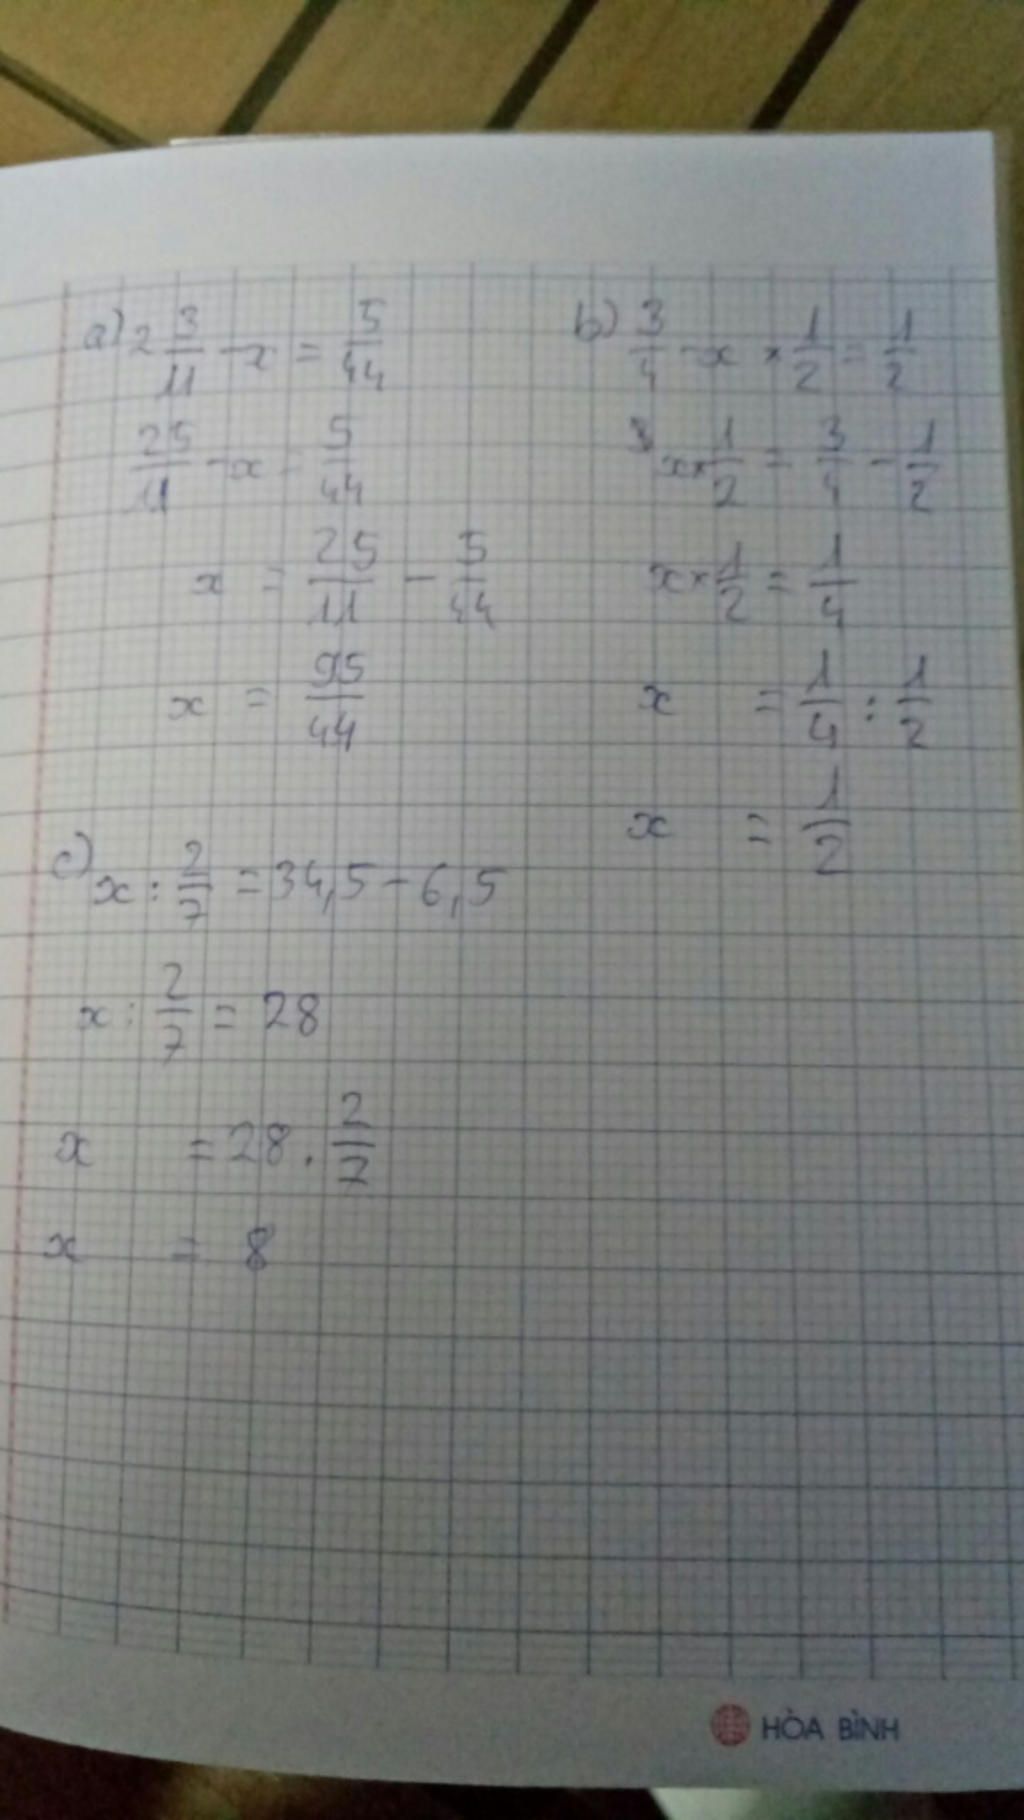 a) 2 3/11 - x = 5/44
25/11 - x = 5/44
x = 25/11 - 5/44
x = 95/44
b) 3/4 - x × 1/2 = 1/2
x × 1/2 = 3/4 - 1/2
x × 1/2 = 1/4
x = 1/4 : 1/2
x = 1/2
c) x : 2/7 = 34,5 - 6,5
x : 2/7 = 28
x = 28 . 2/7
x = 8
HÒA BÌNH